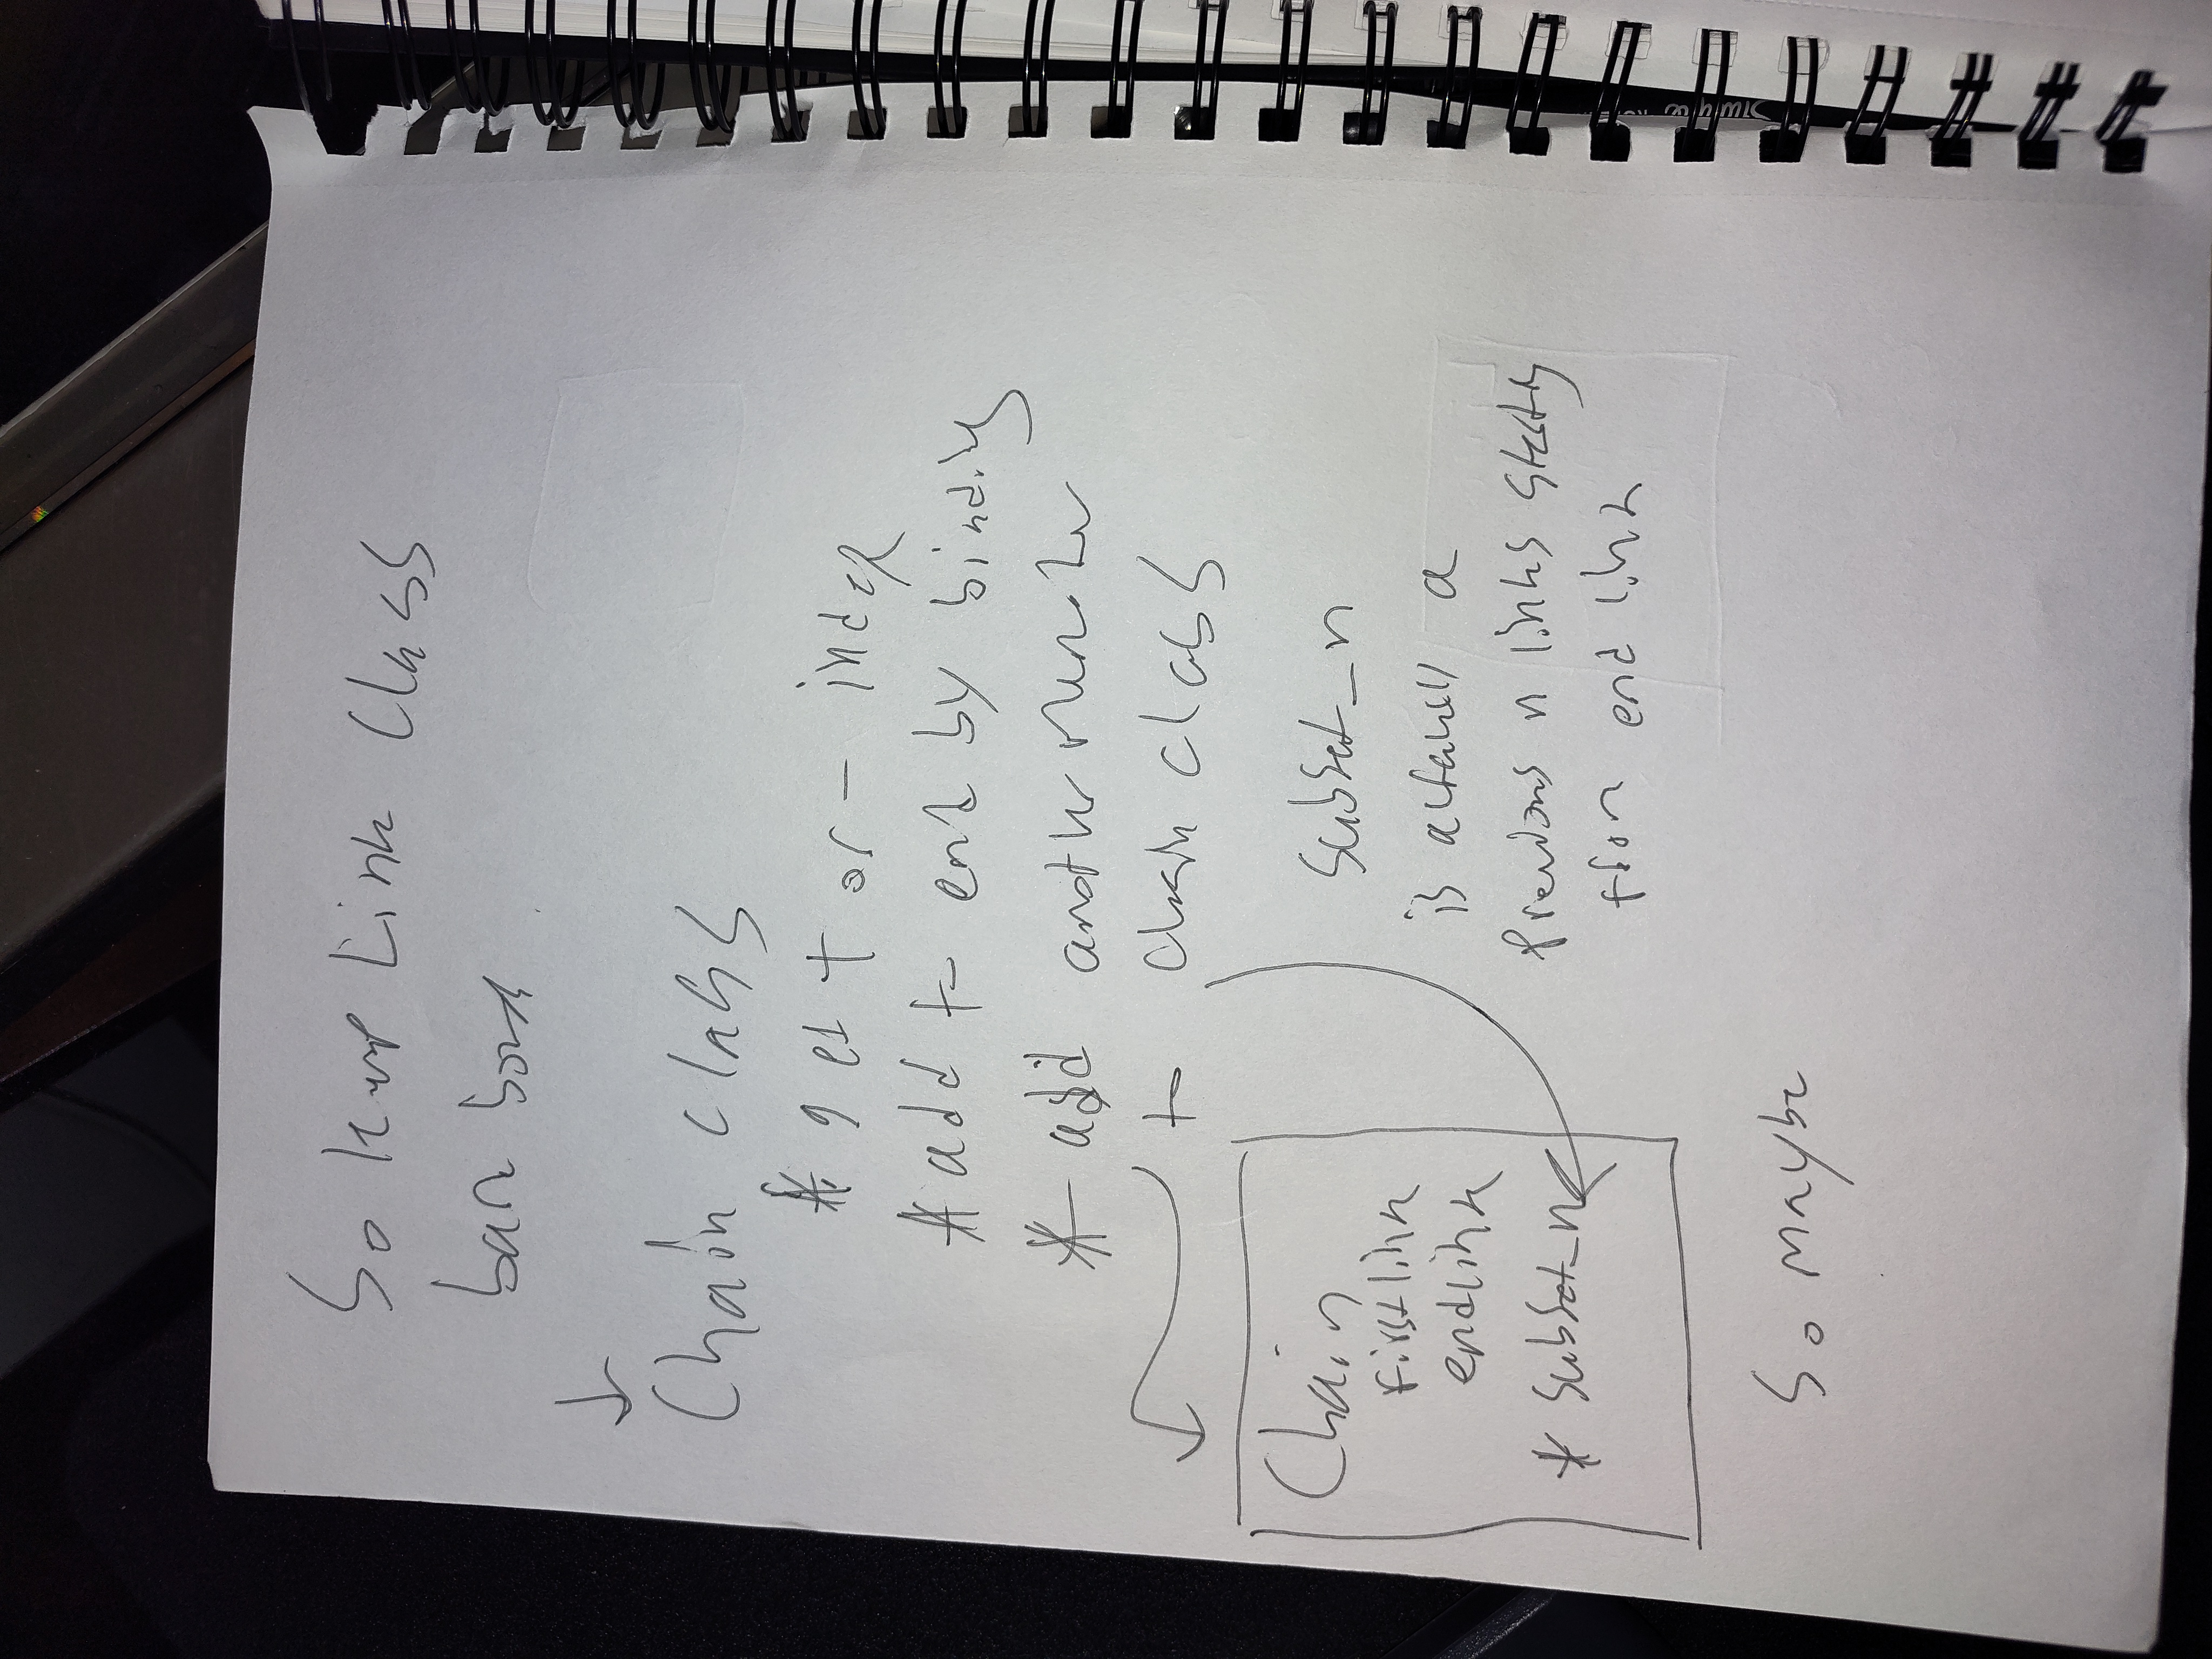 So keep Link Class
bare bones
Chain class
* get + or - index
* add to end by binding
* add another member
to chain class
Chain
firstlink
endlink
* subset_n
subset_n
is a
Previous n links starting
from end link
So maybe
Simple